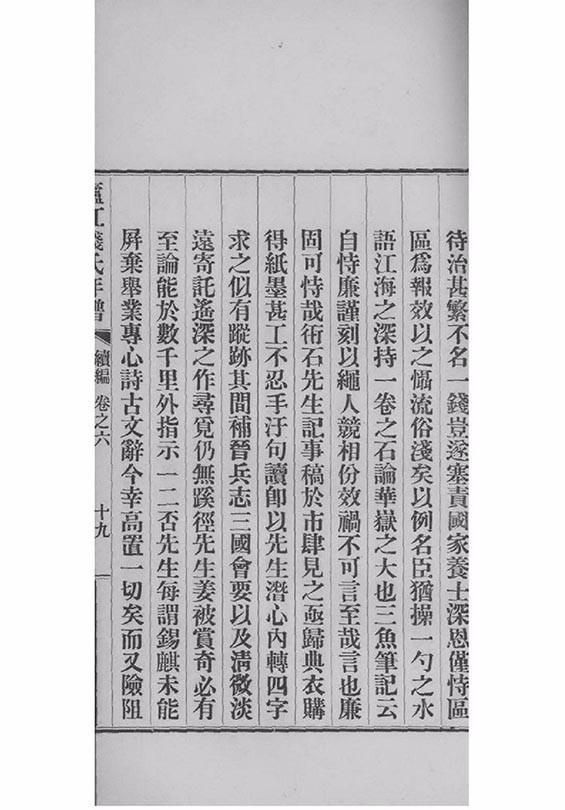 待治甚繁不名一錢豈遂塞責國家養士深恩僅恃區
區爲報效以之懾流俗淺矣以例名臣猶操一勺之水
語江海之深持一卷之石論華嶽之大也三魚筆記云
自恃廉謹刻以繩人競相份效禍不可言至哉言也廉
固可恃哉衎石先生記事稿於市肆見之亟歸典衣購
得紙墨甚工不忍手汙句讀卽以先生潛心內轉四字
求之似有蹤跡其間補晉兵志三國會要以及淸微淡
遠寄託遙深之作尋覓仍無蹊徑先生姜被賞奇必有
至論能於數千里外指示一二否先生每謂錫麒未能
屛棄舉業專心詩古文辭今幸高置一切矣而又險阻
廬江錢氏年譜 續編 卷之六 十九